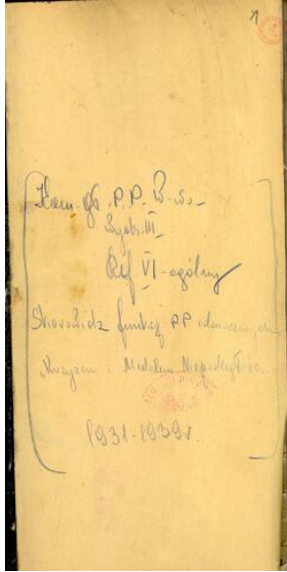 1
Kom. Gł. P.P. W-wa
Wydz. III
Ref VI-ogólny
Skorowidz funkcj PP odznaczonych
Krzyżem i Medalem Niepodległości
1931-1939r.